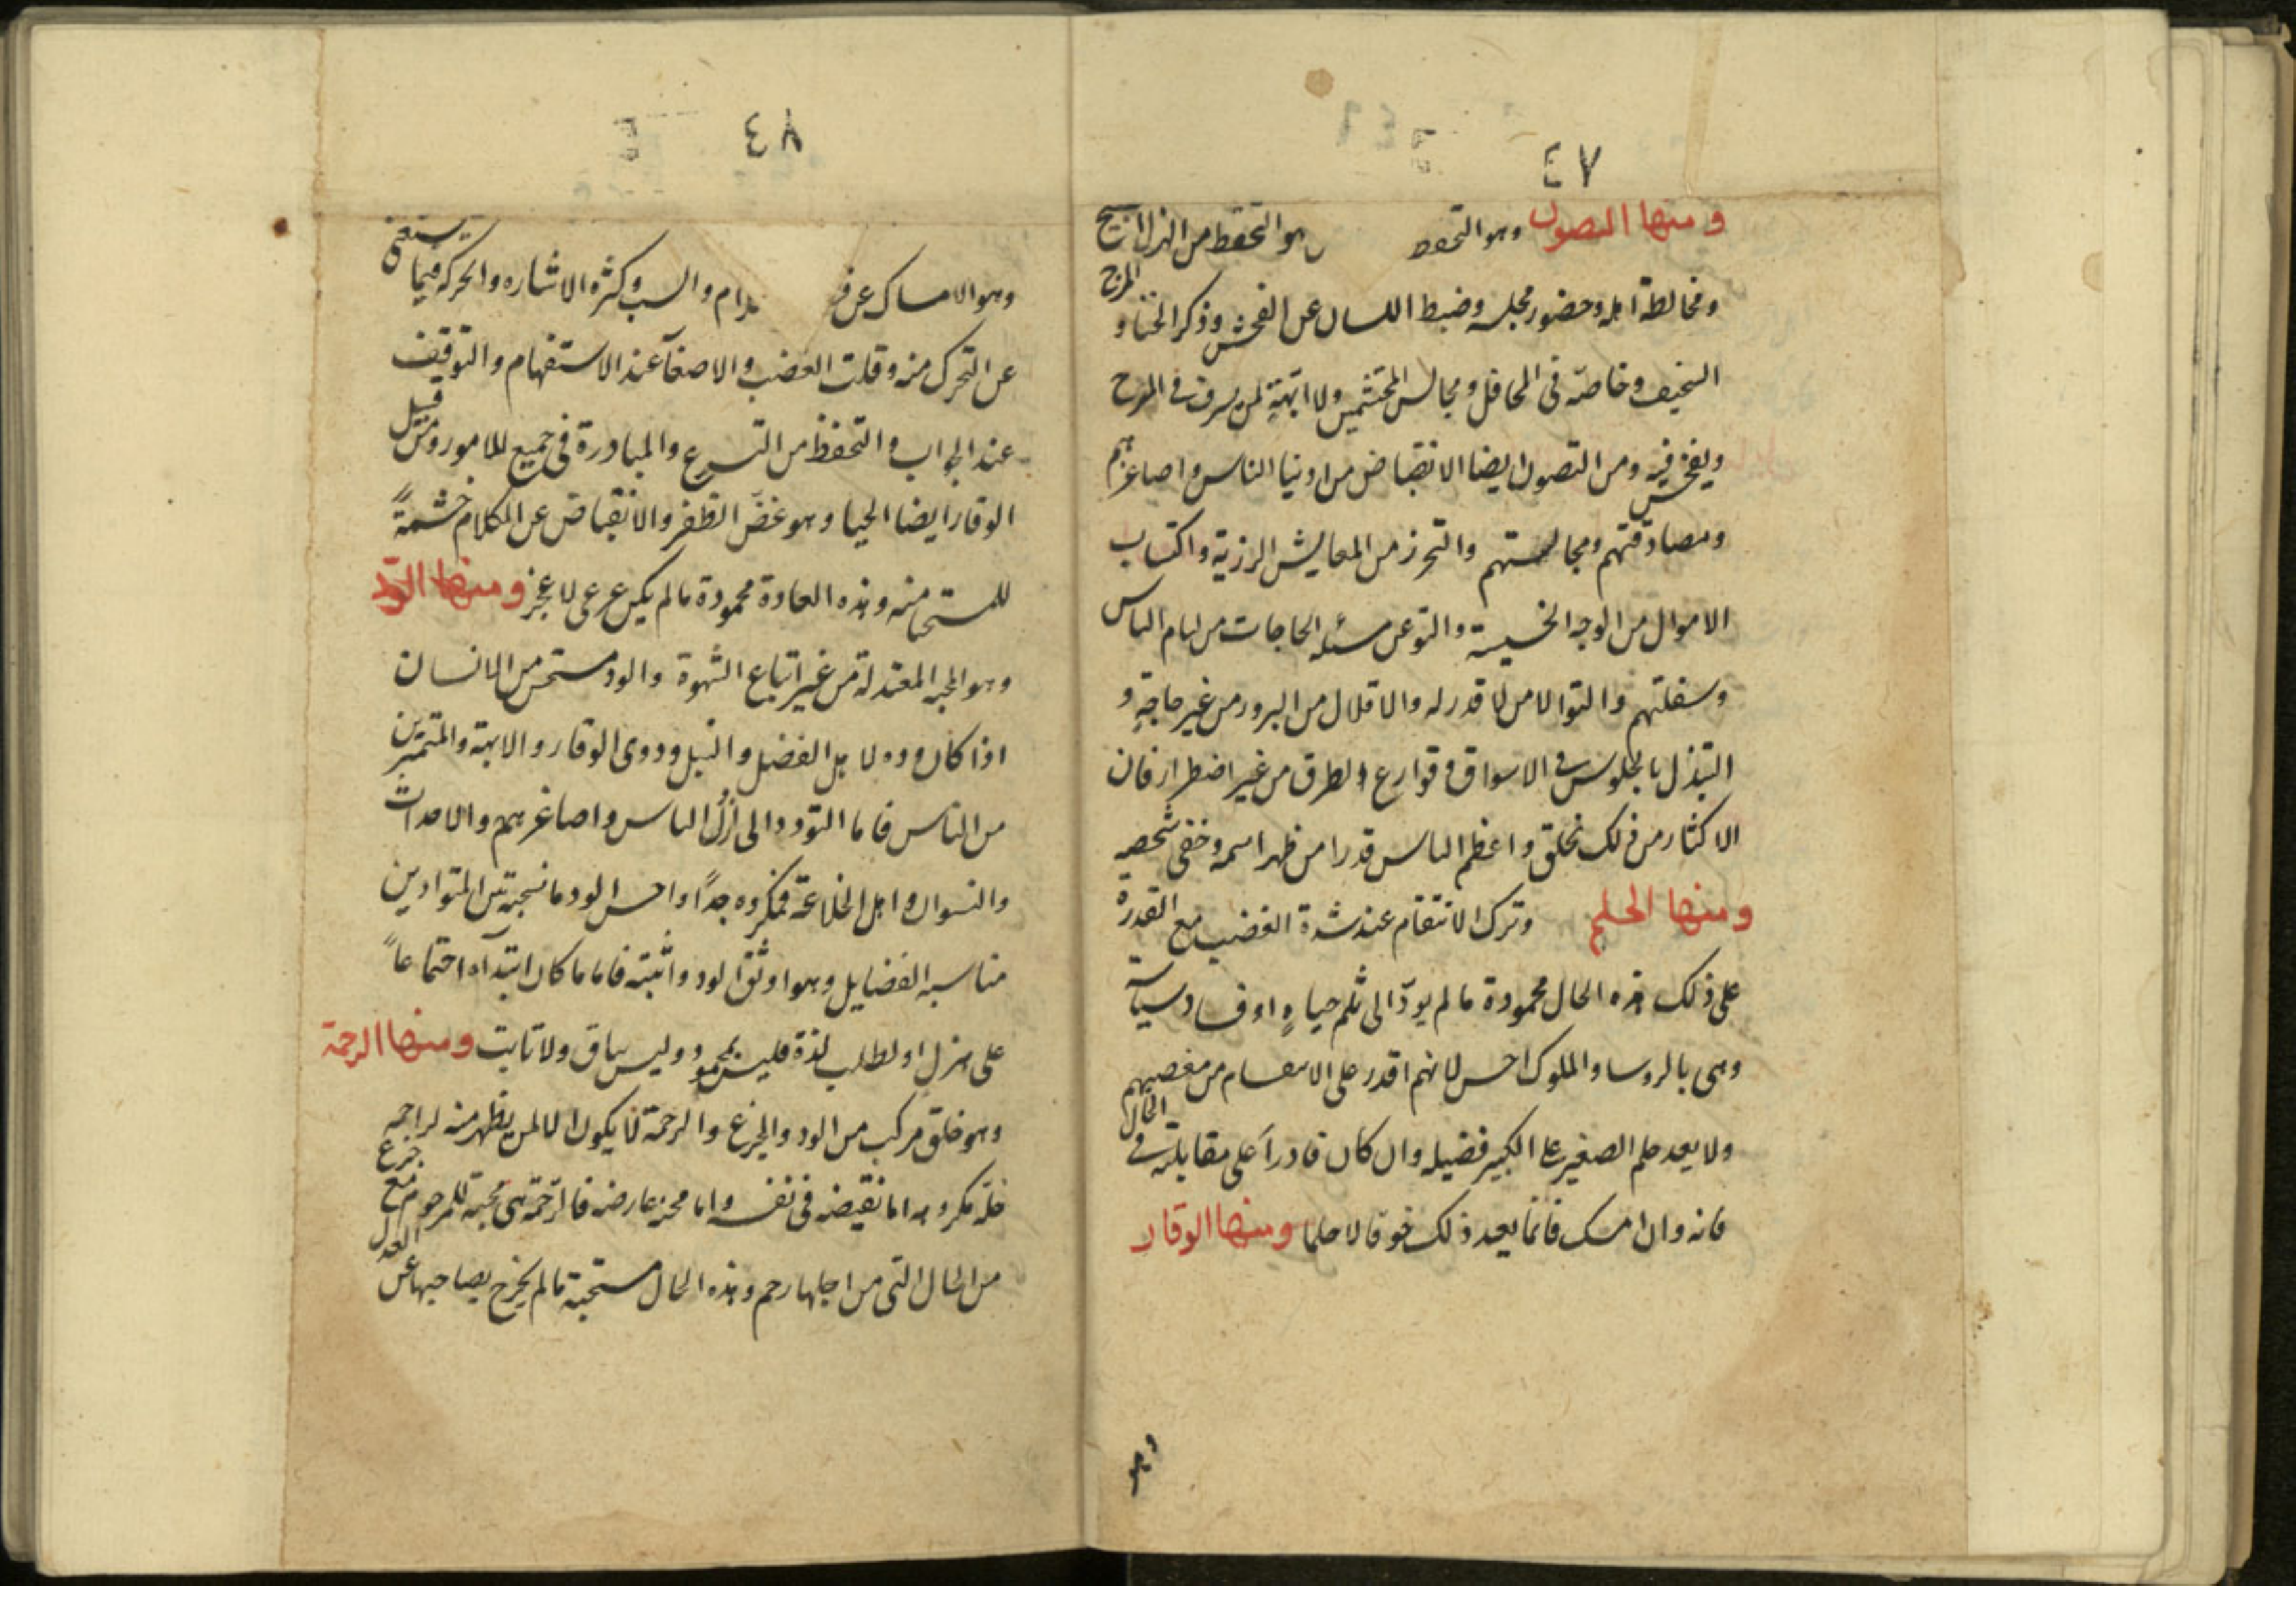 ٤٧
ومنها التصون وهو التحفظ هو التحفظ من الهزل القبيح
ومخالطة اهله وحضور مجلسه وضبط اللسان عن الفحش وذكر الخنا و المزح
السخيف وخاصة في المحافل ومجالس المحتشمين ولا ابهة لمن يسرف في المزح
ويفحش فيه ومن التصون ايضا الانقباض من ادنيا الناس واصاغرهم
ومصادقتهم ومجالستهم والتحرز من المعايش الرزية واكتساب
الاموال من الوجه الخسيسة والتو عن مسئله الحاجات من ليام الناس
وسفلتهم والتوا لا من لا قدر له والاقلال من البرور من غير حاجةٍ و
التبذل بالجلوس في الاسواق و قوارع الطرق من غير اضطرار فان
الاكثار من ذلك نخلق واعظم الناس قدرا من ظهر اسمه وخفى شخصه
ومنها الحلم وترك الانتقام عند شدة الغضب مع القدرة
على ذلك هذه الحال محمودة ما لم يودّ الى ثلم حياهٍ او فساد سياسة
وهى بالروسا والملوك احسن لانهم اقدر على الانتقام من مغضبيهم
ولا يعد حلم الصغير على الكبير فضيله وان كان قادراً على مقابلته في الحال
فانه وان امسك فانما يعد ذلك خوفا لا حلما ومنها الوقار
وهو
٤٨
وهو الامساك عن ف والسب وكثرة الاشاره والحركه فيما يستغنى
عن التحرك منه وقلت الغضب والاصغآ عند الاستفهام والتوقف
عند الجواب والتحفظ من التسرع والمبادرة في جميع الامور ومن قبيل
الوقار ايضا الحيا وهو غضّ الطفر والانقباض عن الكلام حشمةً
للمستحيا منه وهذه العادة محمودة ما لم يكن عن عى لا عجز ومنها الود
وهو المحبه المعتدلة من غير اتباع الشهوة والود مستحسن من الانسان
اذا كان وده لاهل الفضل والنبل وذوى الوقار والابهة والمتميزين
من الناس فاما التودد الى ارذل الناس واصاغرهم والاحداث
والنسوان واهل الخلاعة فمكروه جداً واحسن الود ما نسجته بين المتوادين
مناسبه الفضايل وهو اوثق الود واثبته فاما ما كان ابتدآه اجتماعاً
على هزل او لطلب لذة فليس بمحمود وليس بباق ولا ثابت ومنها الرحمة
وهو خلق مركب من الود والجزع والرحمة لا يكون الا لمن يظهر منه لراحمه
خلّه مكروهه اما نقيضه في نفسه واما محنه عارضه فالرحمة هى محبة للمرحوم مع جزع
من الحال التى من اجلها رحم وهذه الحال مستحبة ما لم يخرج بصاحبها عن العدل